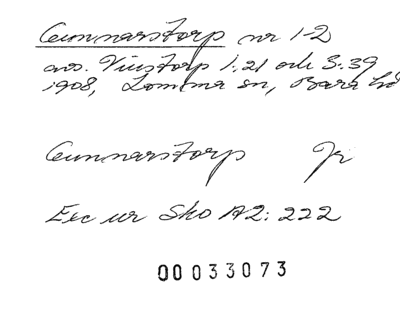 Gunnarstorp nr 1-2
avs. Vinstorp 1:21 och 3:39
1908, Lomma sn, Bara hd
Gunnarstorp Jr
Exc ur Sko A2: 222
00033073